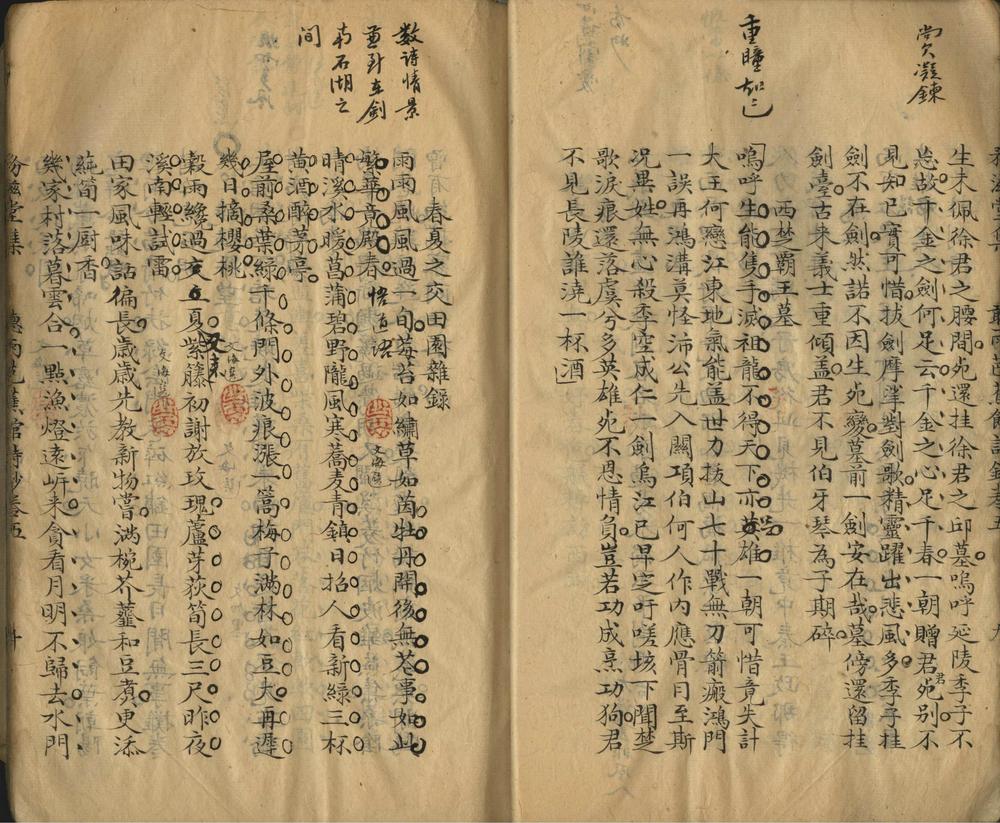 欠凝鍊
生未佩徐君之腰間死還挂徐君之邱墓嗚呼延陵季子不
忘故千金之劍何足云千金之心足千春一朝贈君死別不
見知已實可惜拔劍摩挲對劍歌精靈躍出悲風多季子挂
劍不在劍然諾不因生死變墓前一劍安在哉墓傍還留挂
劍臺古来義士重傾盖君不見伯牙琴為子期碎
西楚霸王墓
重瞳知己
嗚呼生能隻手滅祖龍不得天下亦英雄一朝可惜竟失計
大王何戀江東地氣能盖世力拔山七十戰無刀箭瘢鴻門
一誤再鴻溝莫怪沛公先入關項伯何人作内應骨肉至斯
況異姓無心殺季空成仁一劍烏江已早定吁嗟垓下聞楚
歌淚痕還落虞兮多英雄死不恩情負豈若功成烹功狗君
不見長陵誰澆一杯酒
数詩情景
並到在劍
南石湖之
间
春夏之交田園雜錄
雨雨風風過一旬莓苔如繡草如茵牡丹開後無花事如此
繁華竟殿春 悟道語
晴溪水暖菖蒲碧野隴風寒蕎麦青鎮日招人看新綠三杯
黄酒醉茅亭
屋前桑葉綠千條閘外波痕漲一篙梅子滿林如豆大再遲
幾日摘櫻桃
穀雨纔過交立夏紫藤初謝放玫瑰蘆芽荻筍長三尺昨夜
溪南輕試雷
田家風味話偏長歲歲先教新物嘗滿椀芥虀和豆煮更添
蓴筍一厨香
幾家村落暮雲合一點漁燈遠岍来貪看月明不歸去水門